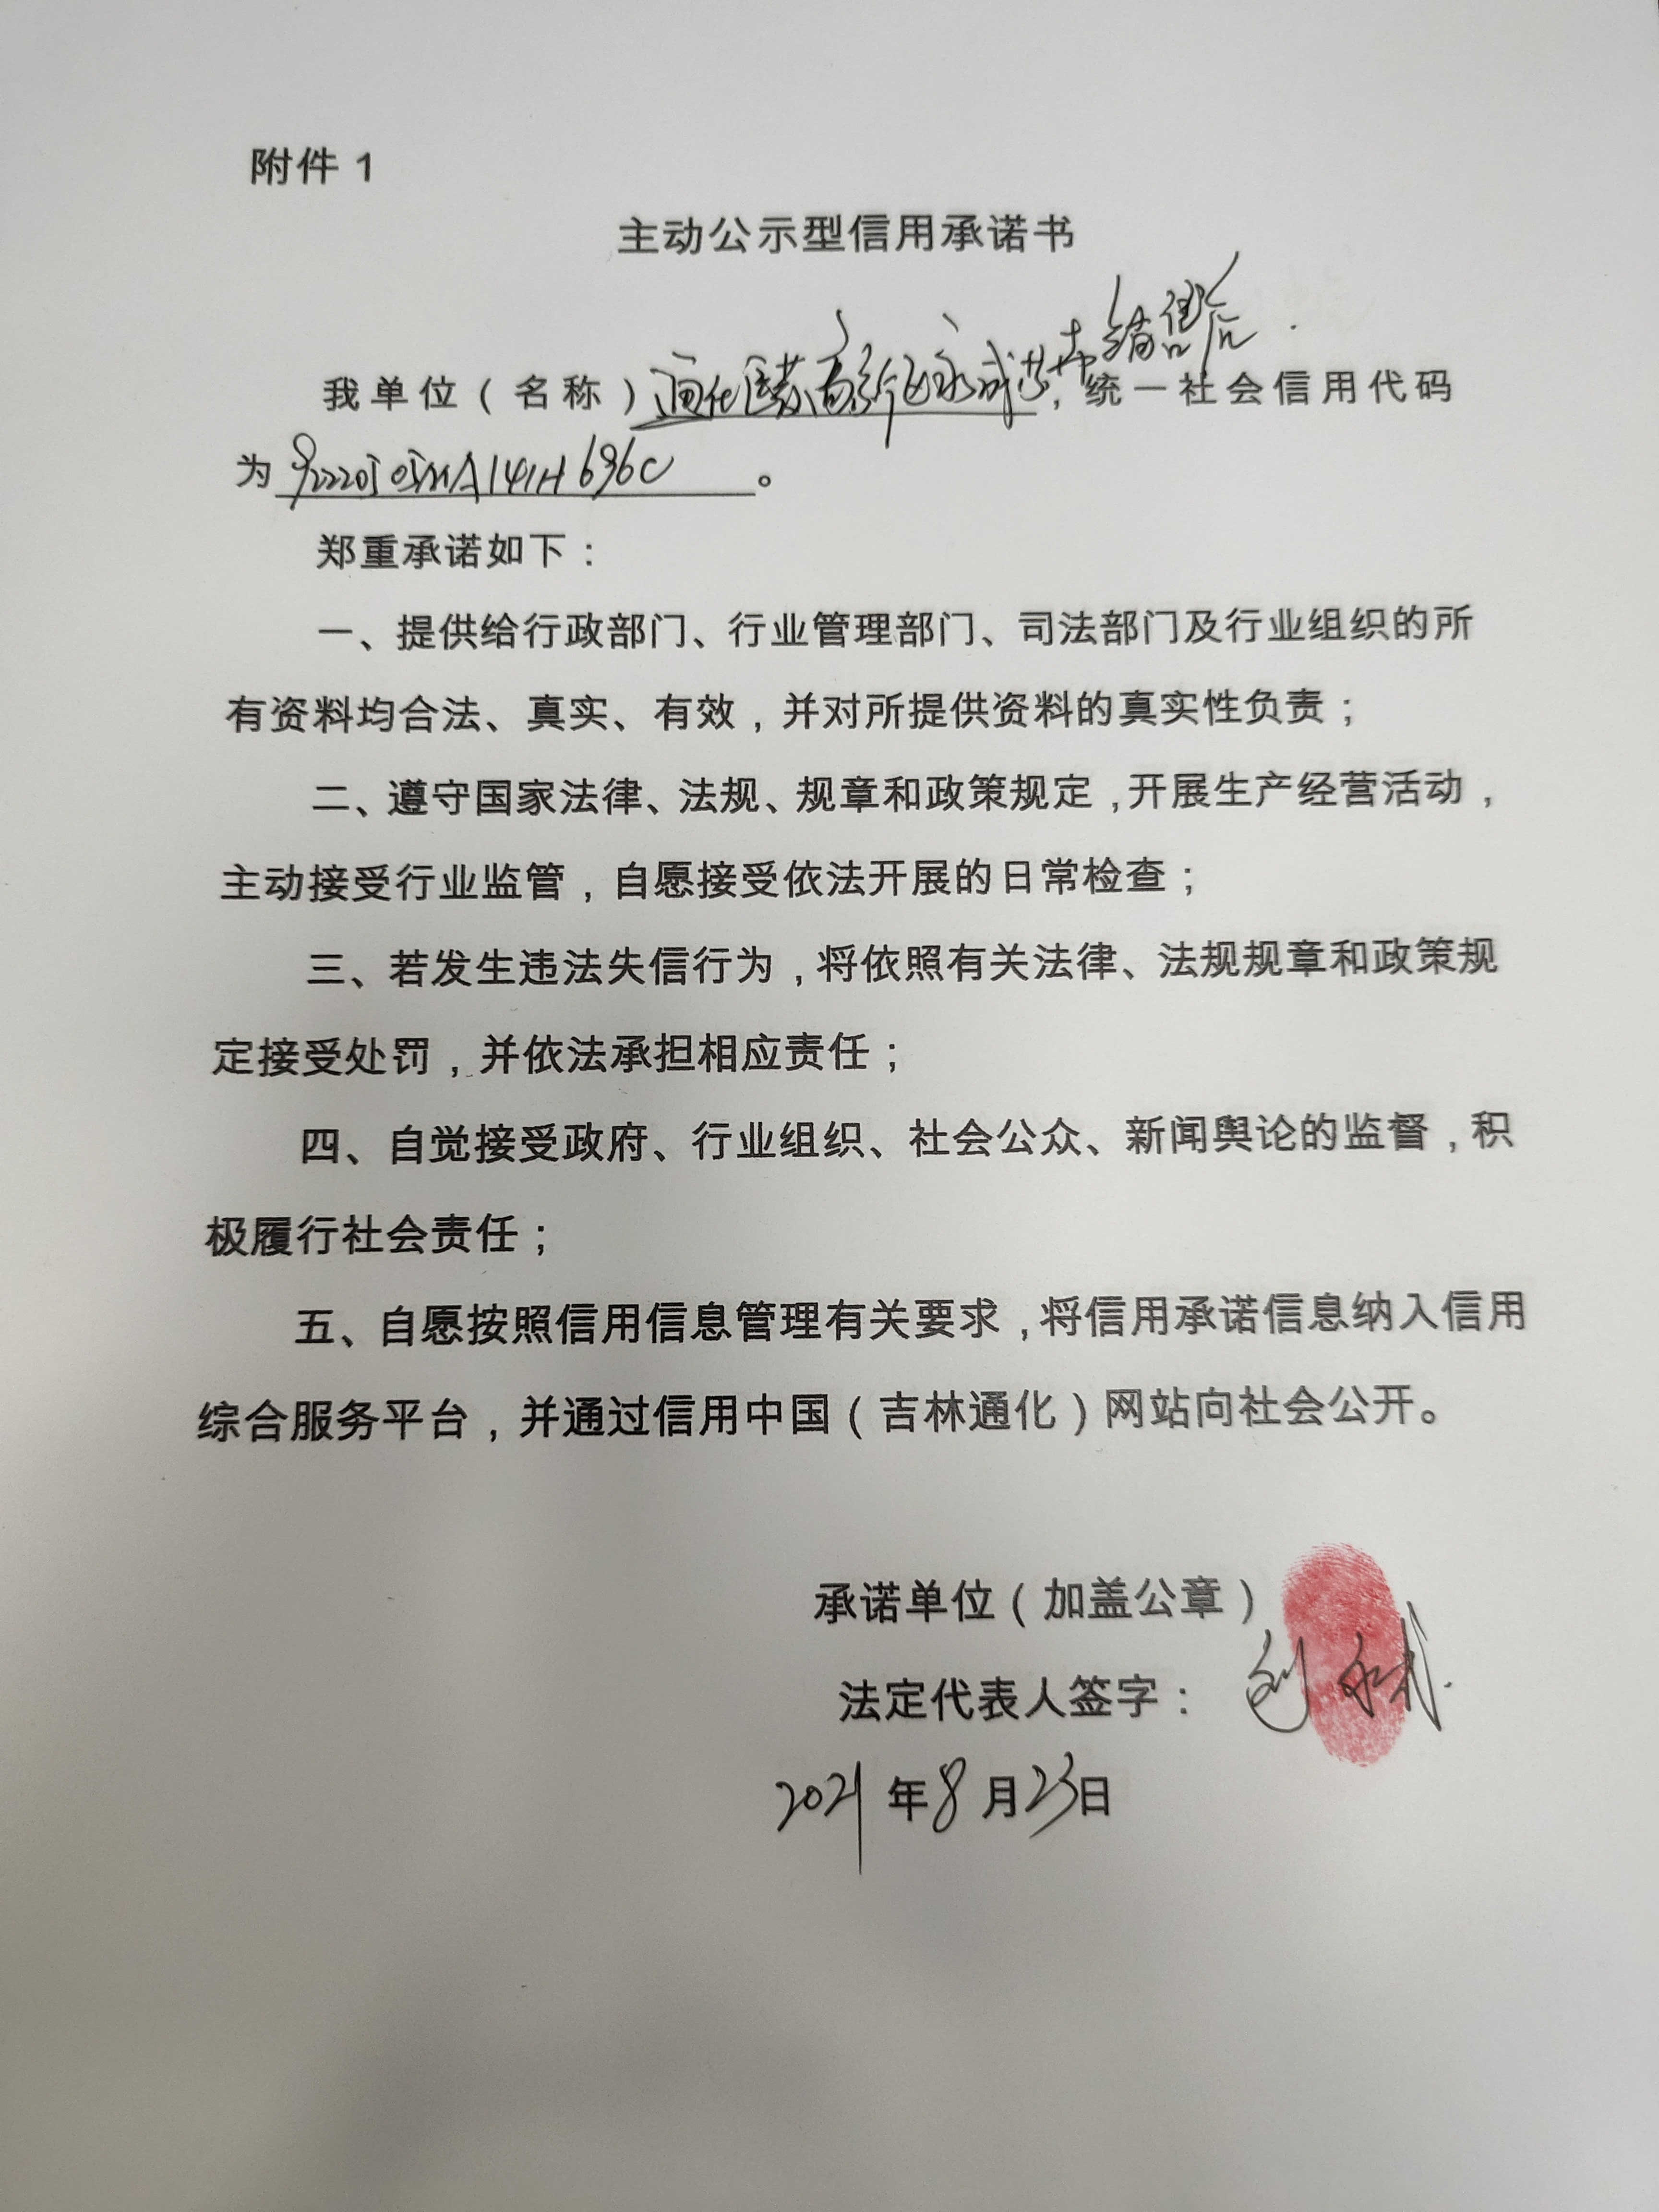 附件 1
主动公示型信用承诺书
我单位（名称）通化医药高新区永成,统一社会信用代码
为 。
郑重承诺如下：
一、提供给行政部门、行业管理部门、司法部门及行业组织的所
有资料均合法、真实、有效，并对所提供资料的真实性负责；
二、遵守国家法律、法规、规章和政策规定，开展生产经营活动，
主动接受行业监管，自愿接受依法开展的日常检查；
三、若发生违法失信行为，将依照有关法律、法规规章和政策规
定接受处罚，并依法承担相应责任；
四、自觉接受政府、行业组织、社会公众、新闻舆论的监督，积
极履行社会责任；
五、自愿按照信用信息管理有关要求，将信用承诺信息纳入信用
综合服务平台，并通过信用中国（吉林通化）网站向社会公开。
承诺单位（加盖公章）
法定代表人签字：
2021年8月23日